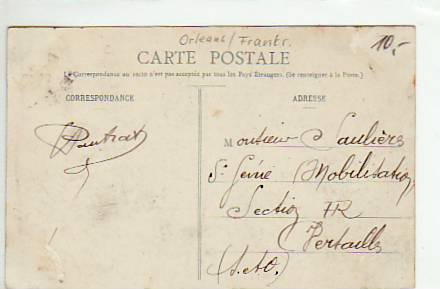 Orleans/Frankr.
10,-
CARTE POSTALE
La Correspondance au recto n'est pas acceptée par tous les Pays Etrangers. (Se renseigner à la Poste.)
CORRESPONDANCE
ADRESSE
Monsieur Saulière
Mobilisation
Section
Versailles
(S.etO.)